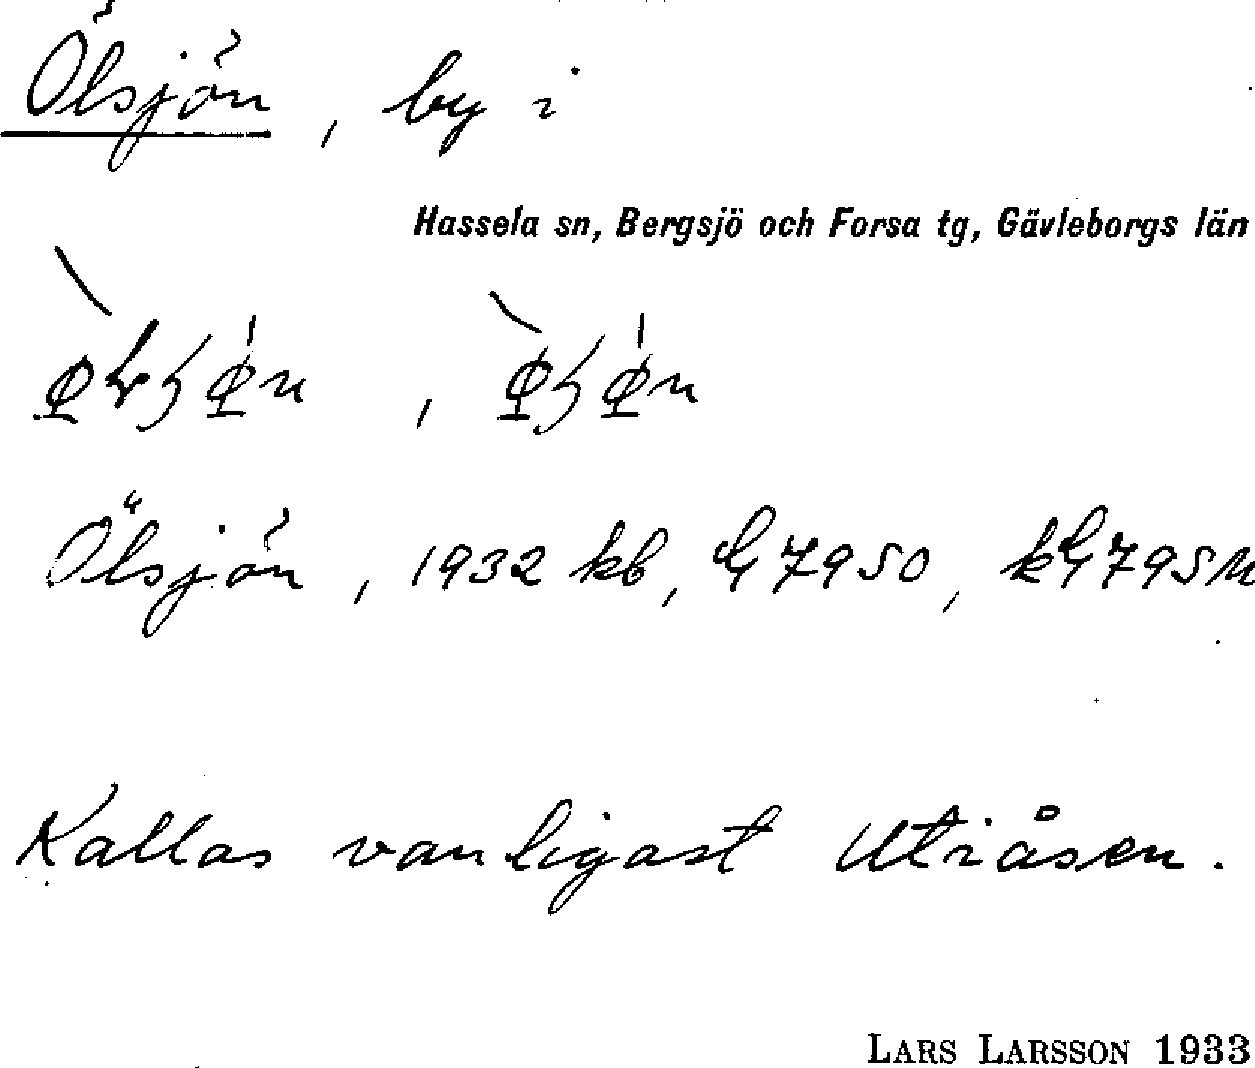 Ölsjön, by i
Hassela sn, Bergsjö och Forsa tg, Gävleborgs län
Ölsjön, 1932 kb, G 7950, kG 795
Kallas vanligast Utiåsen.
LARS LARSSON 1933